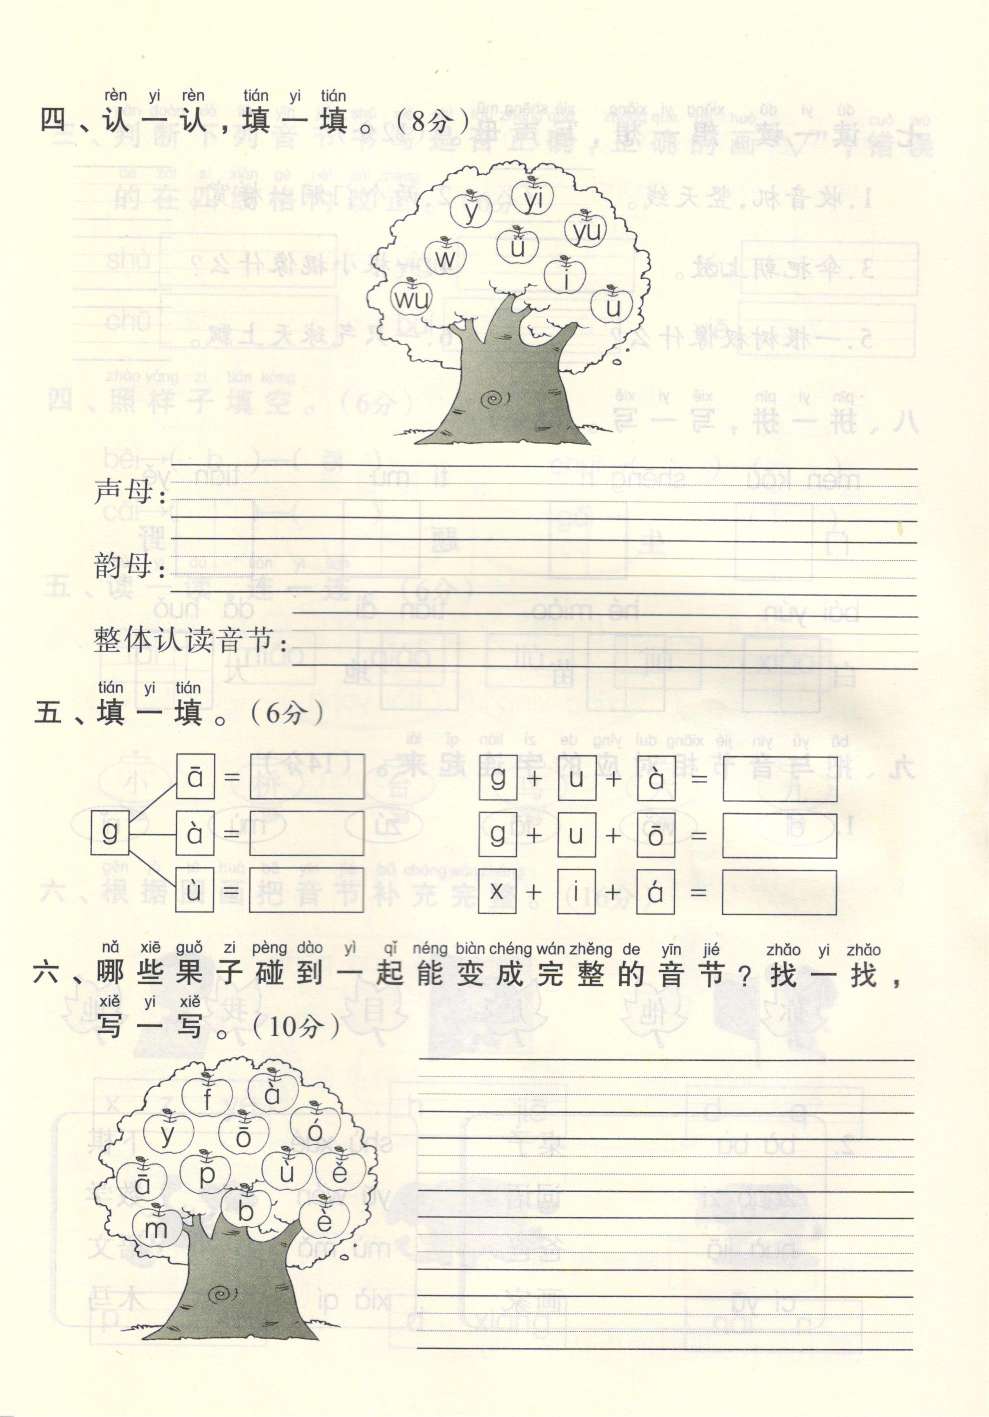 rèn yi rèn tián yi tián
四、认一认，填一填。（8分）
y yi yu
w ü i
wu u
声母：
韵母：
整体认读音节：
tián yi tián
五、填一填。（6分）
ā = g + u + à =
g à = g + u + ō =
ù = x + i + á =
nǎ xiē guǒ zi pèng dào yì qǐ néng biàn chéng wán zhěng de yīn jié zhǎo yi zhǎo
六、哪些果子碰到一起能变成完整的音节？找一找，
xiě yi xiě
写一写。（10分）
f à
y ō ó
ā p ù ě
m b è